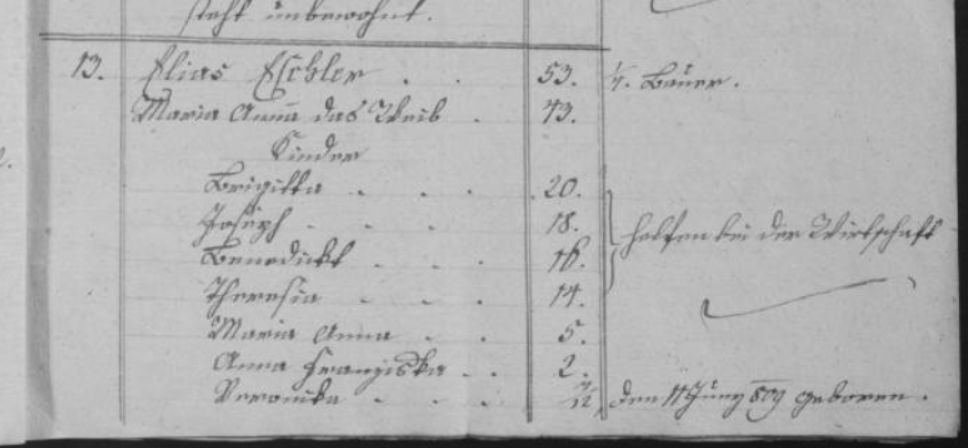 steht unbewohnt.
13. Elias Eschler . . 53. 1/4. Bauer.
Maria Anna das Weib . 43.
Kinder
Brigitta . . . 20.
Joseph . . . 18.
helfen bei der Wirtschaft
Benedickt . . . 16.
Theresia . . . 14.
Maria Anna . . 5.
Anna Franziska . . 2.
Veronika . . . /12 den 11 Juny 809 geboren.